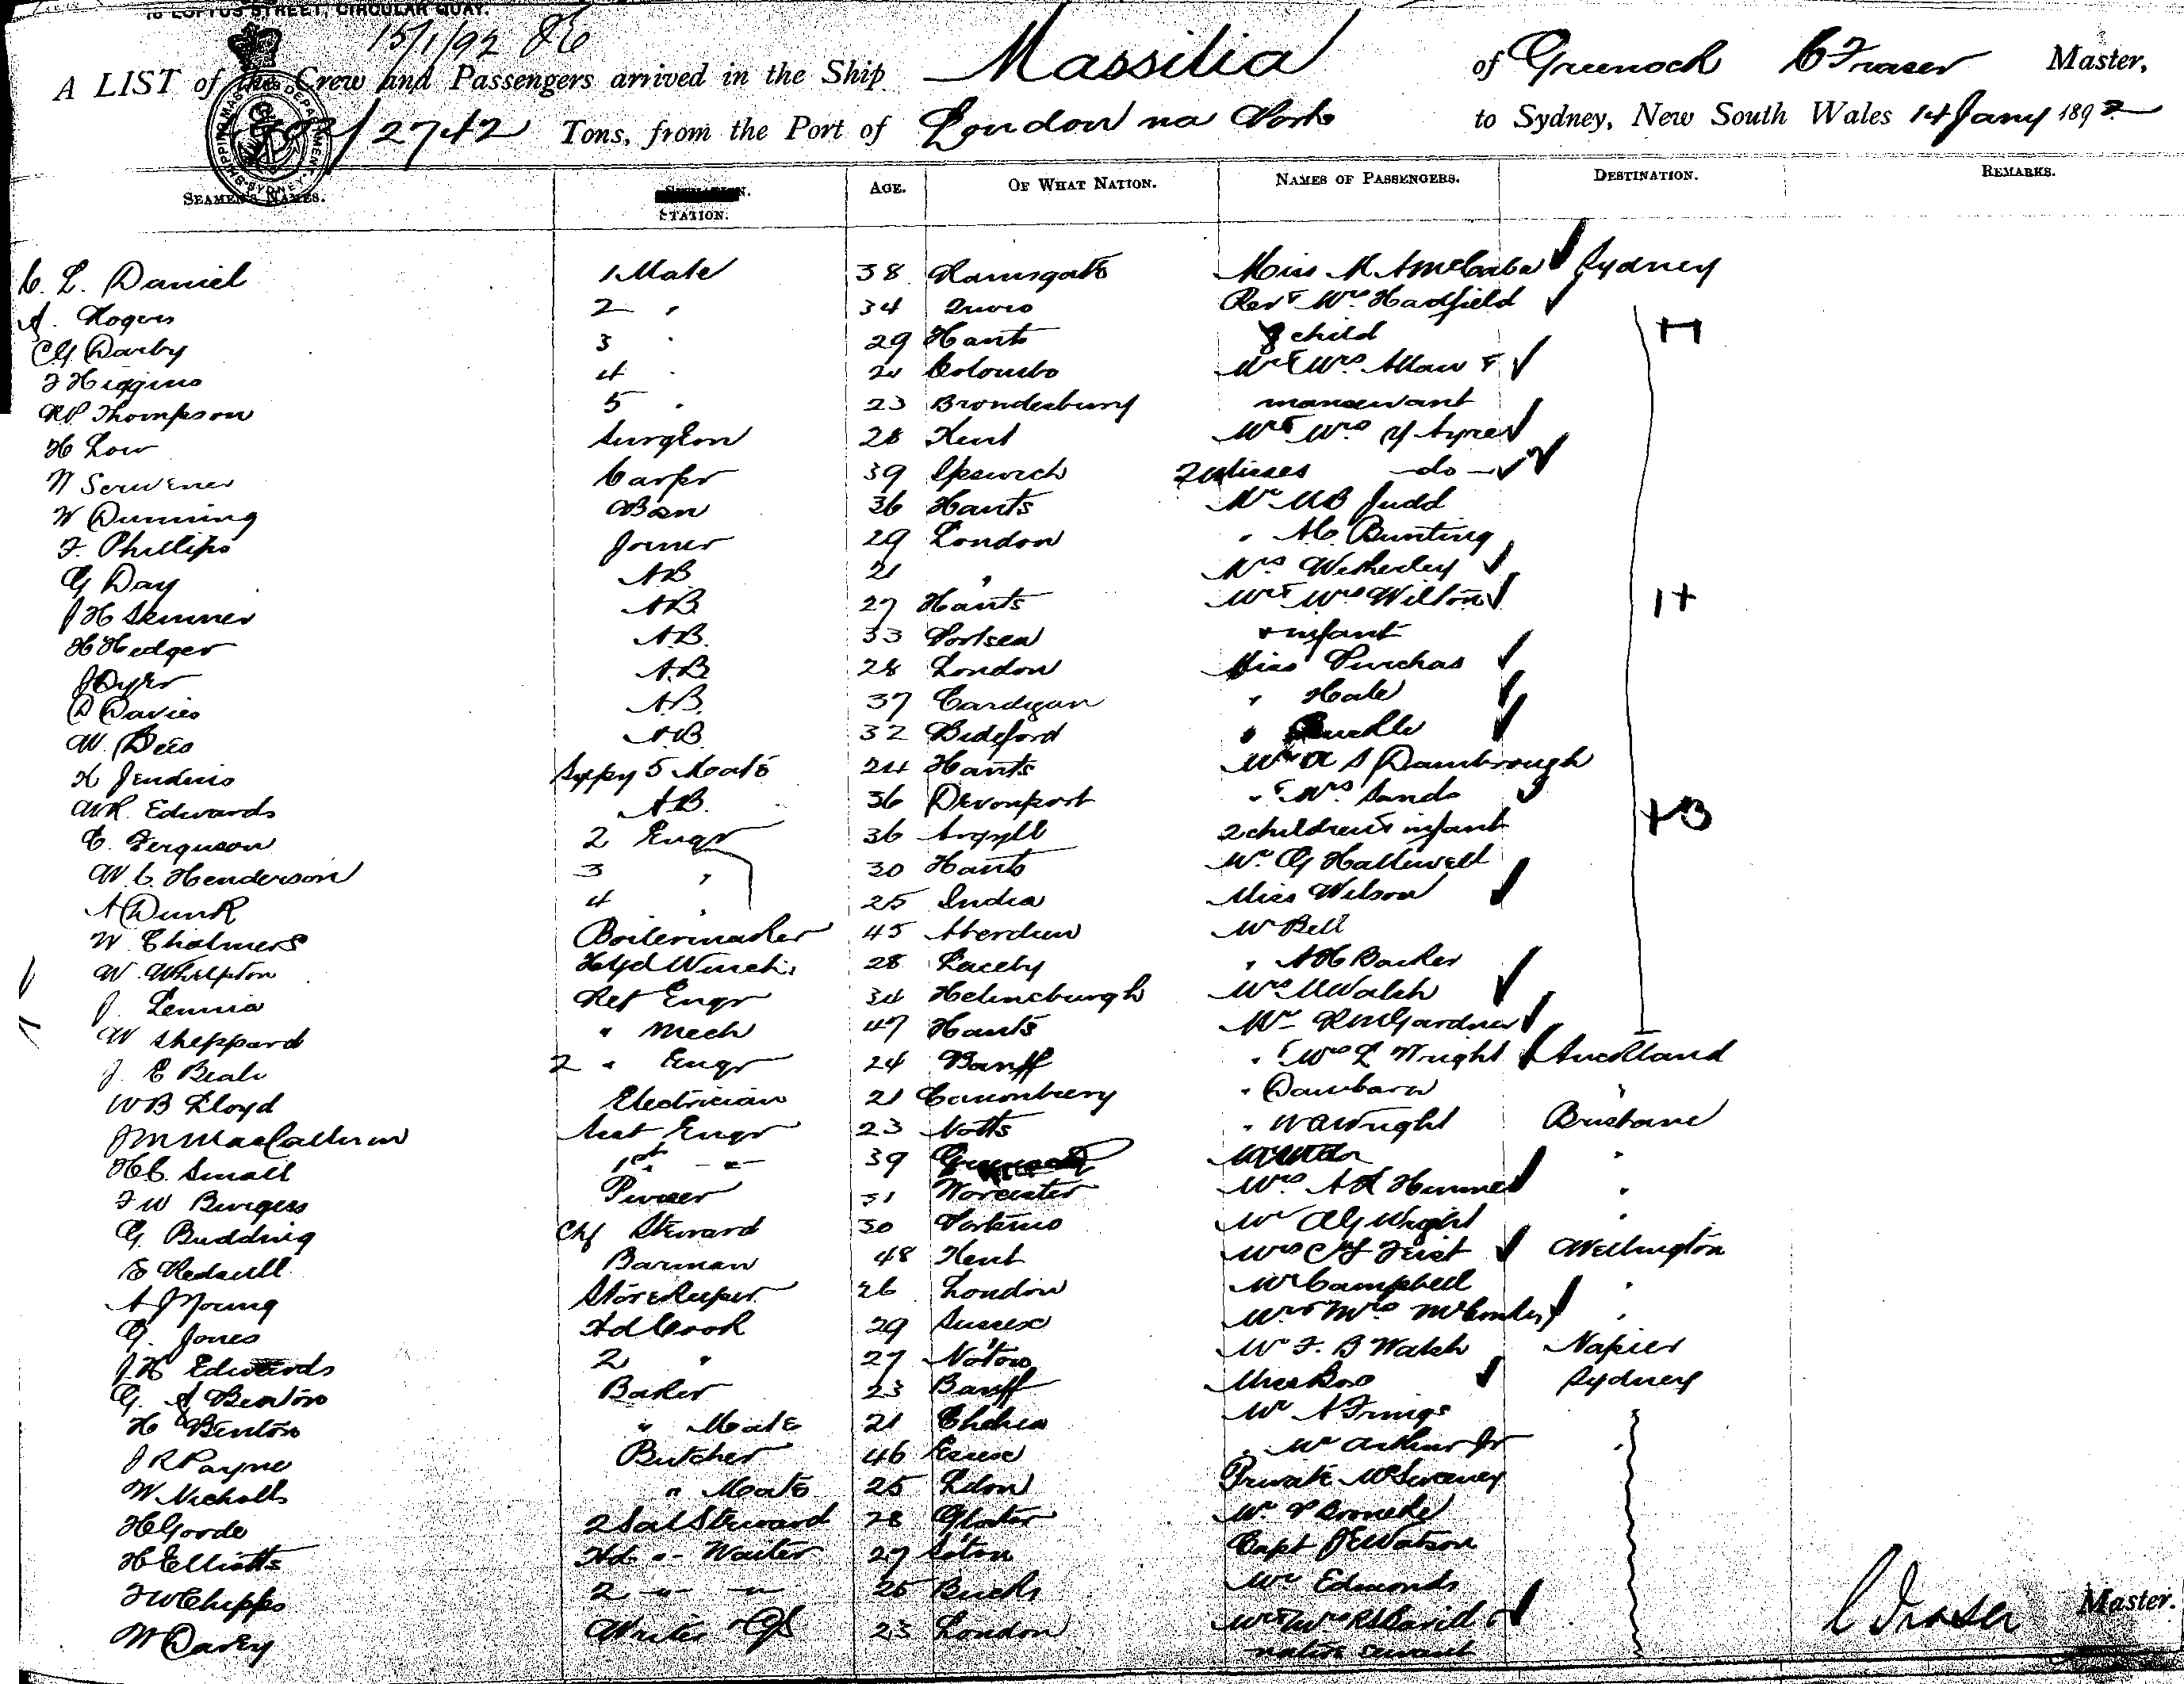 18 LOFTUS STREET, CIRCULAR QUAY.
15/1/92
A LIST of the Crew and Passengers arrived in the Ship Massilia of Greenock C Fraser Master,
2742 Tons, from the Port of London via Ports to Sydney, New South Wales 14 Jany 1892
SHIPPING MASTER'S DEPARTMENT SYDNEY
SEAMEN'S NAMES. STATION. AGE. OF WHAT NATION. NAMES OF PASSENGERS. DESTINATION. REMARKS.
C. L. Daniel 1 Mate 38 Ramsgate Miss M A McCabe Sydney
A. Rogers 2 " 34 Revd & Mrs Hadfield
C G Darby 3 " 29 Hants & child
F Higgins 4 " Colombo Mr & Mrs Allan &
R P Thompson 5 " 23 Brondesbury manservant
H Low Surgeon 28 Kent Mr & Mrs Y Ayres
W Scrivener Carpr 39 Ipswich 2 Misses -do-
W Dunning Bsn 36 Hants Mr Judd
F. Phillips Joiner 29 London " Bunting
G Day A.B. 21 " Mrs Wetherley
J H Skinner A.B. 27 Hants Mr & Mrs Wilton
H Hedger A.B. 33 Portsea & infant
J Dyer A.B. 28 London Miss Purchas
D Davies A.B. 37 Cardigan " Hale
W. A.B. 32 Bideford "
H Jenkins 5 Mate 24 Hants Mr A S Dambrough
W R. Edwards A.B. 36 Devonport " & Mrs Sands
C. Ferguson 2 Engr 36 Argyll 2 children & infant
W. C. Henderson 3 " 30 Hants Mr G Halliwell
A Dunk 4 " 25 India Miss Wilson
W Chalmers Boilermaker 45 Aberdeen Mr Bell
W. Whelpton 28 Laceby " A H Barker
J. Lennie Ref Engr 34 Helensburgh Walsh
W Sheppard " Mech 47 Hants Mr Gardner
J. E Beale 2 " Engr 24 Banff " & Mrs L Wright Auckland
W B Lloyd Electrician 21 Canonbury " Dawbarn "
J M MacCallum Asst Engr 23 Notts " W A Wright Brisbane
H C. Small 1st " " 39 "
F W Burgess Purser 31 Worcester Mrs "
G. Budding Chf Steward 30 Mr A G Wright "
E Redsull Barman 48 Kent Mrs Feist Wellington
A J Young Storekeeper 26 London Mr Campbell "
G. Jones Hd Cook 29 Sussex Mr & Mrs "
J. H Edwards 2 " 27 Mr F. B Walsh Napier
G. A Benton Baker 23 Banff Sydney
H Benton " Mate 21 Chelsea Mr A
J R Payne Butcher 46 Essex " McArthur Jr
W. Nicholls " Mate 25 Ldon Private McSweeney
H Gorde 2 Sal Steward 28 Gloster Mr
H Elliotts Hd " Waiter 27 Capt J E Watson
F W Chipps 2 " " 25 Bucks Mr Edmonds
W Davey Writer 23 London Mr & Mrs &
native servant
C Fraser Master.